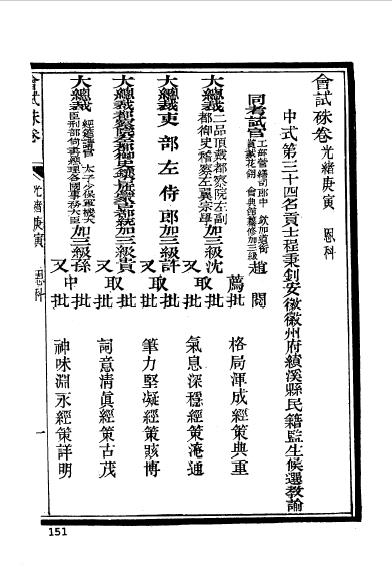 會試硃卷 光緒庚寅 恩科
中式第三十四名貢士程秉釗安徽徽州府績溪縣民籍監生候選教諭
同考試官 工部營繕司郎中 欽加道銜 賞戴花翎 會典館纂修加三級 趙 閱
薦批 格局渾成經策典重
大總裁 二品頂戴都察院左副都御史稽察左翼宗學 加三級沈
取批 氣息深穩經策淹通
大總裁吏部左侍郎加三級許
又取批 筆力堅凝經策賅博
大總裁 加三級貴
又取批 詞意清真經策古茂
大總裁 經筵講官 太子少保軍機大臣刑部尚書總理各國事務大臣 加三級孫
又中批 神味淵永經策詳明
會試硃卷
光緒庚寅 恩科
一
151